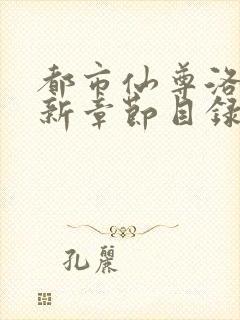 都市仙尊洛
新章節目錄
孔麗